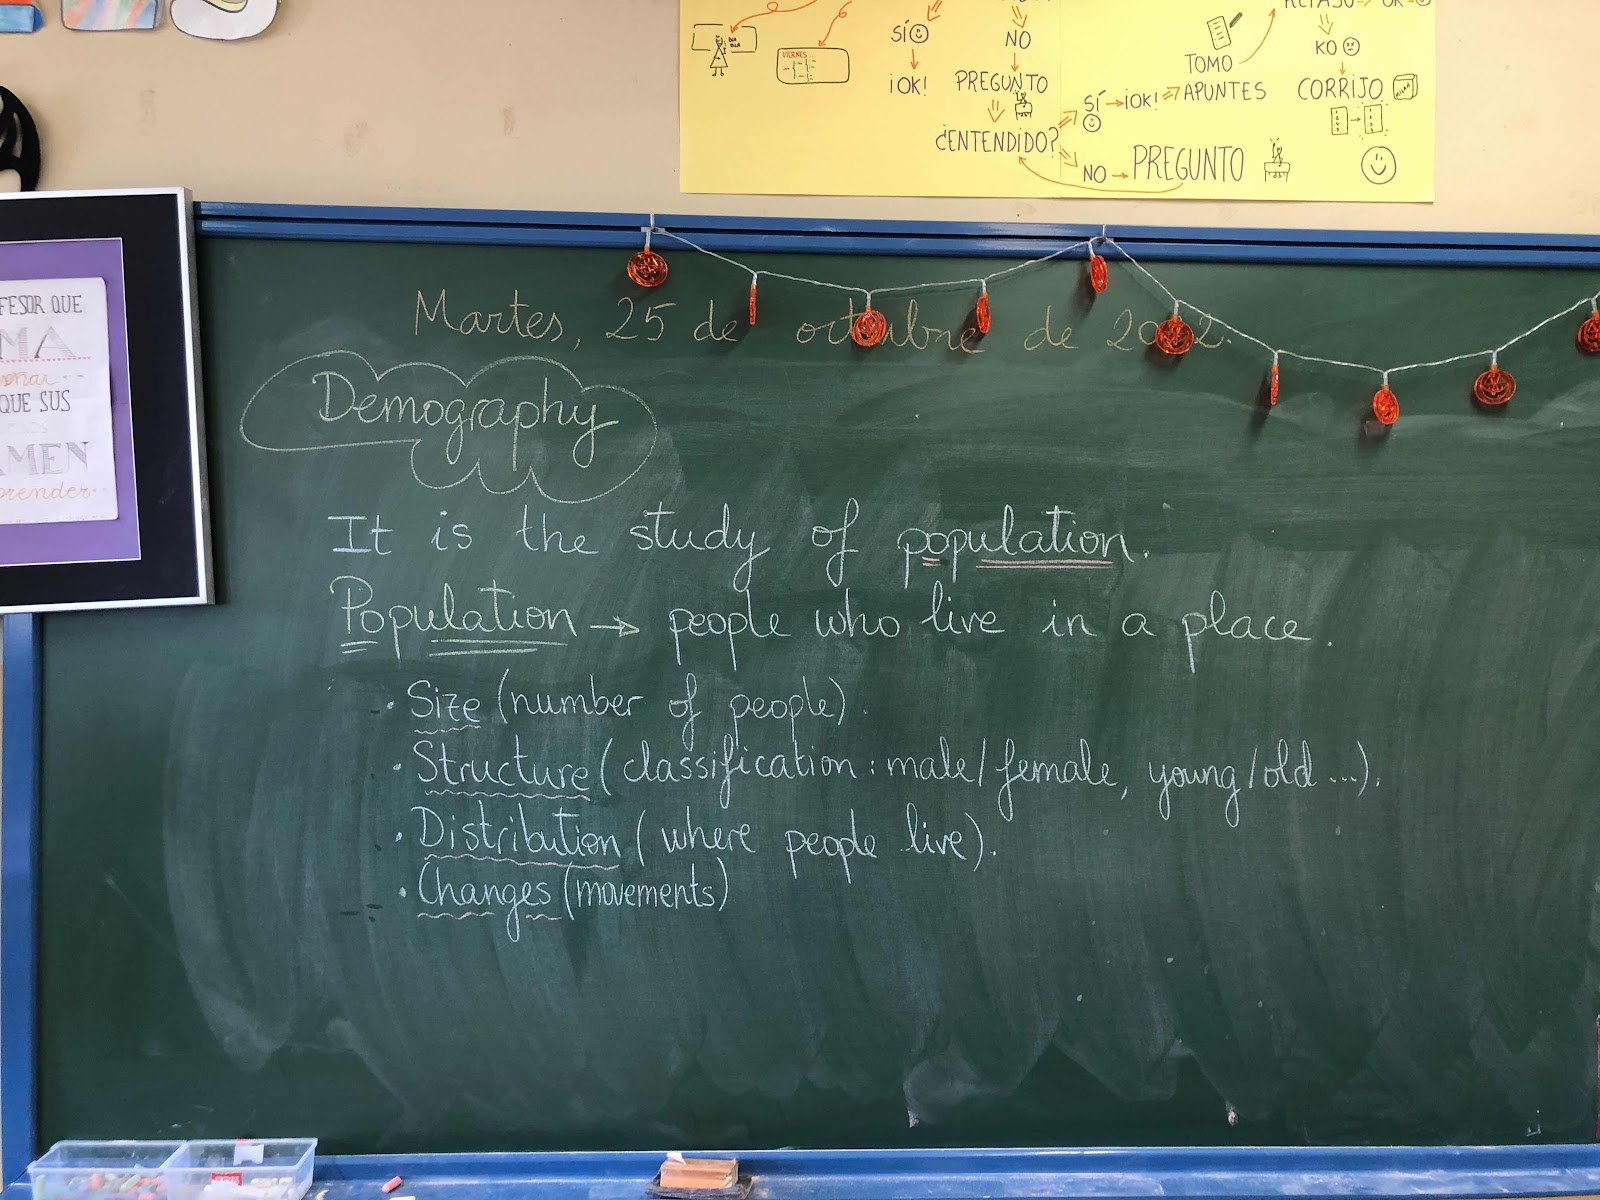 SÍ
NO
¡OK!
PREGUNTO
¿ENTENDIDO?
SÍ
¡OK!
TOMO
APUNTES
NO
PREGUNTO
KO
CORRIJO
VIERNES
QUE
QUE SUS
Martes, 25 de octubre de 2022.
Demography
It is the study of population.
Population → people who live in a place.
· Size (number of people).
· Structure (classification: male/female, young/old ...).
· Distribution (where people live).
· Changes (movements)